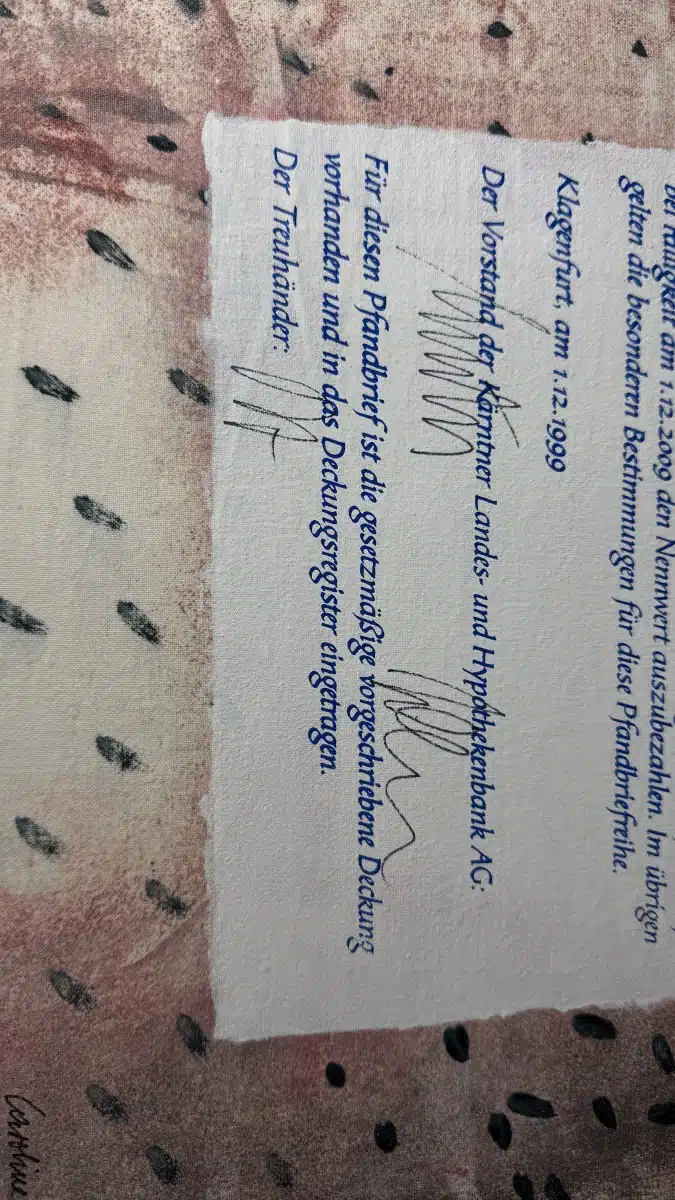 bei Fälligkeit am 1.12.2009 den Nennwert auszubezahlen. Im übrigen
gelten die besonderen Bestimmungen für diese Pfandbriefreihe.
Klagenfurt, am 1.12.1999
Der Vorstand der Kärntner Landes- und Hypothekenbank AG:
Für diesen Pfandbrief ist die gesetzmäßige vorgeschriebene Deckung
vorhanden und in das Deckungsregister eingetragen.
Der Treuhänder:
Caroline